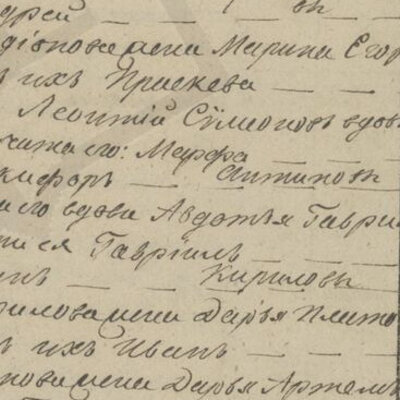 дрей — — въ —
діонова жена Марина Егор
ъ ихъ Праскева — —
Леонтій Сѵмеоновъ вдов
жена его: Марфа — —
кифоръ — Антиповъ
его вдова Авдотья Гаври
ися Гавріилъ — —
анъ — Кириловы
рилова жена Дарья Плато
ъ ихъ Иванъ — —
нова жена Дарья Артем